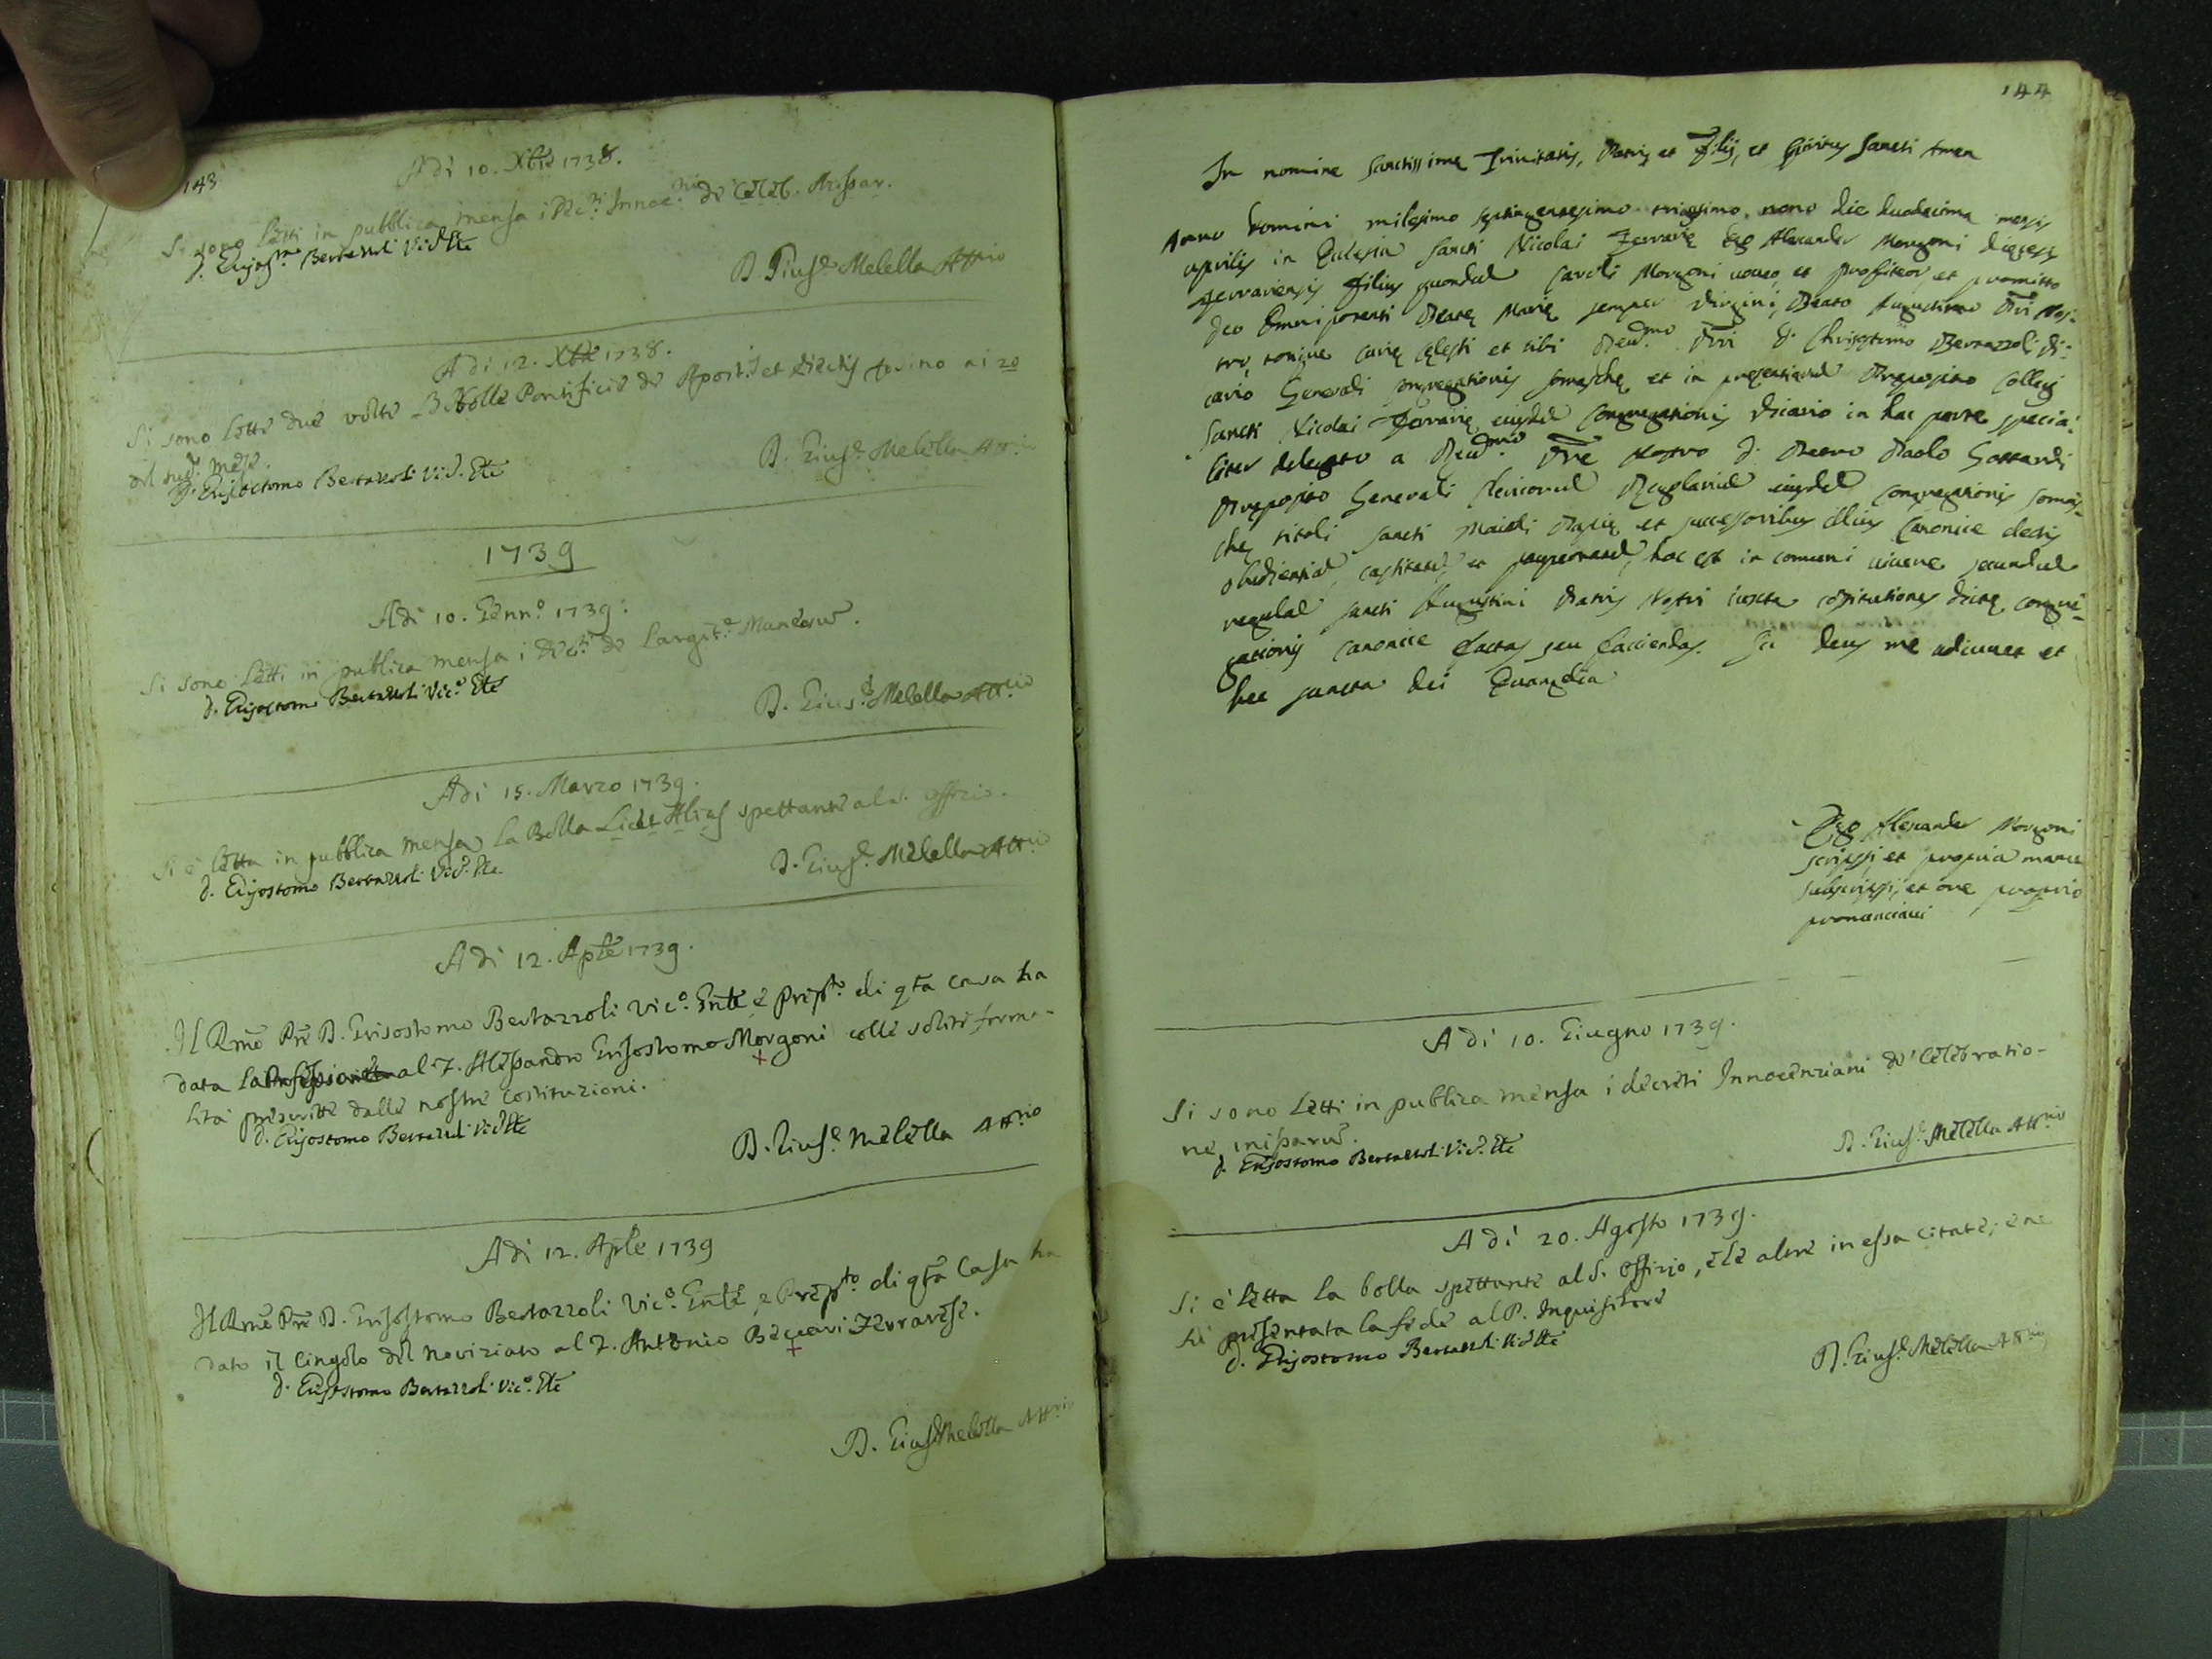 143
Adi 10. Xbre 1738.
Si sono letti in pubblica mensa i Dec.ti Innoc.ni de Celeb. Missar.
d. Grisost.mo Bertazzoli Vic.o Gnle
D. Gius.e Melella Att.rio
Adi 12. Xbre 1738.
Si sono lette due volte 3 Bolle Pontificie de Apost.s et Eiectis fu.ino ai 20
del sud.o mese.
d. Grisostomo Bertazzoli Vic.o Gnle
D. Gius.e Melella Att.rio
1739
Adi 10. Genn.o 1739.
Si sono letti in publica mensa i Decr.ti de Largit.e Munerum.
d. Grisostomo Bertazzoli Vic.o Gnle
D. Gius.e Melella Att.rio
Adi 15. Marzo 1739.
Si è letta in pubblica mensa la Bolla Licet Alias spettante al S. Offizio.
d. Grisostomo Bertazzoli Vic.o Gnle
D. Gius.e Melella Att.rio
Adi 12. Aple 1739.
Il Rmo Pre D. Grisostomo Bertazzoli Vic.o Gnle e Prep.to di qta casa ha
data la Professione al F. Alessandro Grisostomo Morgoni colle solite forma-
lità prescritte dalle nostre costituzioni.
d. Grisostomo Bertazzoli Vic.o Gnle
D. Gius.e Melella Att.rio
Adi 12. Aple 1739
Il Rmo Pre D. Grisostomo Bertazzoli Vic.o Gnle, e Prep.to di qta Casa ha
dato il Cingolo del Noviziato al F. Antonio Beccari Ferrarese.
d. Grisostomo Bertazzoli Vic.o Gnle
D. Gius.e Melella Att.rio
144
In nomine Sanctissimę Trinitatis, Patris et Filij, et Spiritus Sancti Amen
Anno Domini milesimo septingentesimo trigesimo nono die duodecima mensis
aprilis in Eclesia Sancti Nicolai Ferrarię Ego Alexander Morgoni dięcesis
Ferrariensis filius quondam Caroli Morgoni voueo, et profiteor, et promitto
Deo Omnipotenti Beatę Marię semper Virgini, Beato Augustino Pri Nos-
tro, totique curię cęlesti et tibi Reud.mo Pri D. Chrisostomo Bertazzoli Vi-
cario Generali congregationis Somaschę et in presentiarum Preposito Collegij
Sancti Nicolai Ferrarię eiusdem Congregationis Vicario in hac parte specia-
liter delegato a Reud.mo Pre Nostro D. Petro Paolo Gottardi
Preposito Generali Clericorum Regularium eiusdem congregationis Somas-
chę tituli Sancti Maioli Papię et successoribus illius Canonice electis
obedientiam, castitatem, et paupertatem, hoc est in comuni uiuere secundum
regulam sancti Augustini Patris Nostri iuxta costitutiones dictę congre-
gationis canonice factas seu faciendas. Sic Deus me adiuuet et
hec sancta Dei Euangelia
Ego Alexander Morgoni
scripsi et propria manu
subscripsi, et ore proprio
pronunciaui
Adi 10. Giugno 1739.
Si sono letti in publica mensa i decreti Innocenziani de Celebratio-
ne missarum.
d. Grisostomo Bertazzoli Vic.o Gnle
D. Gius.e Melella Att.rio
Adi 20. Agosto 1739.
Si è letta la bolla spettante al S. Offizio, e le altre in essa citate; e ne
hi presentata la fede al P. Inquisitore
d. Grisostomo Bertazzoli Vic.o Gnle
D. Gius.e Melella Att.rio